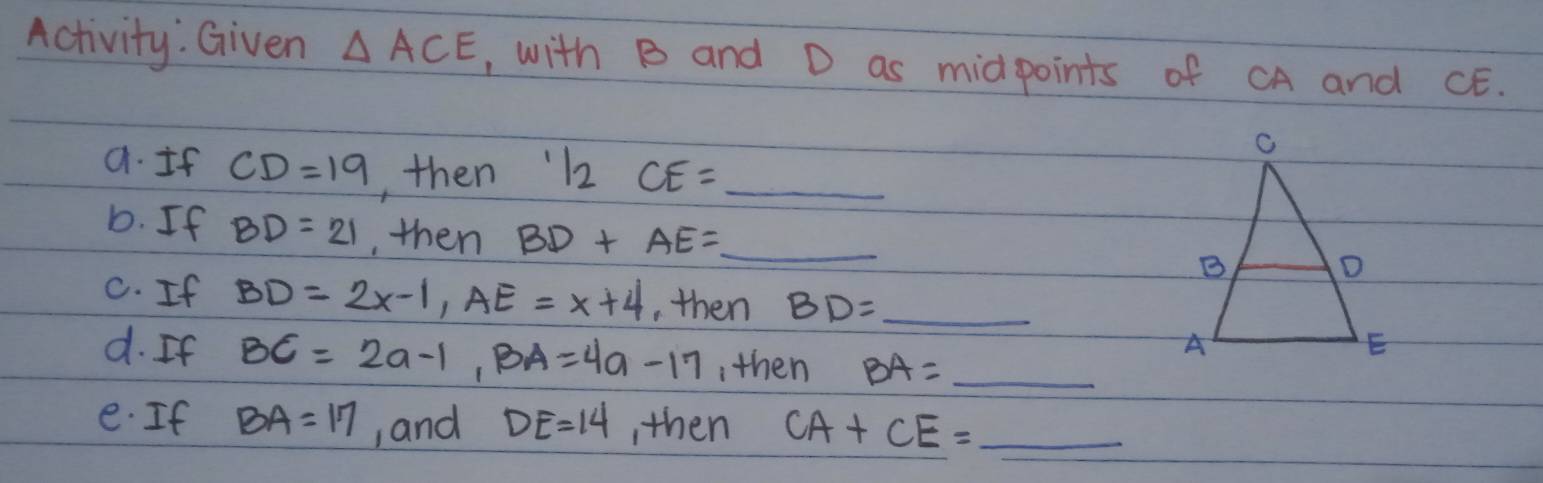 Activity: Given △ ACE, with B and D as midpoints of CA and CE.
a. If CD=19, then 1/2 CE=______
b. If BD=21, then BD + AE=______
c. If BD= 2x-1, AE = x+4, then BD=______
d. If BC= 2a-1, BA=4a-17, then BA=______
e. If BA=17, and DE=14, then CA + CE =______
C
B D
A E